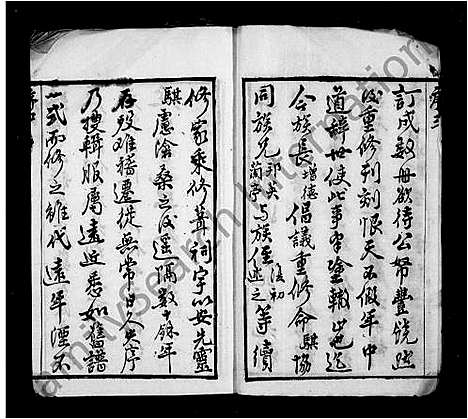 訂成數冊欲待公帑豐饒然
後重修刊刻恨天不假年中
道辭世使此事半塗輟也迄
今族長增德倡議重修命騏協
同族兄邦英蘭亭与族侄後初述之等續
修家乘修葺祠宇以安先靈
騏慮滄桑之後遥隔數十餘年
存歿难稽遷徙無常日久失序
乃搜輯服属遠近悉如舊譜
一式而修之雖代遠年湮不